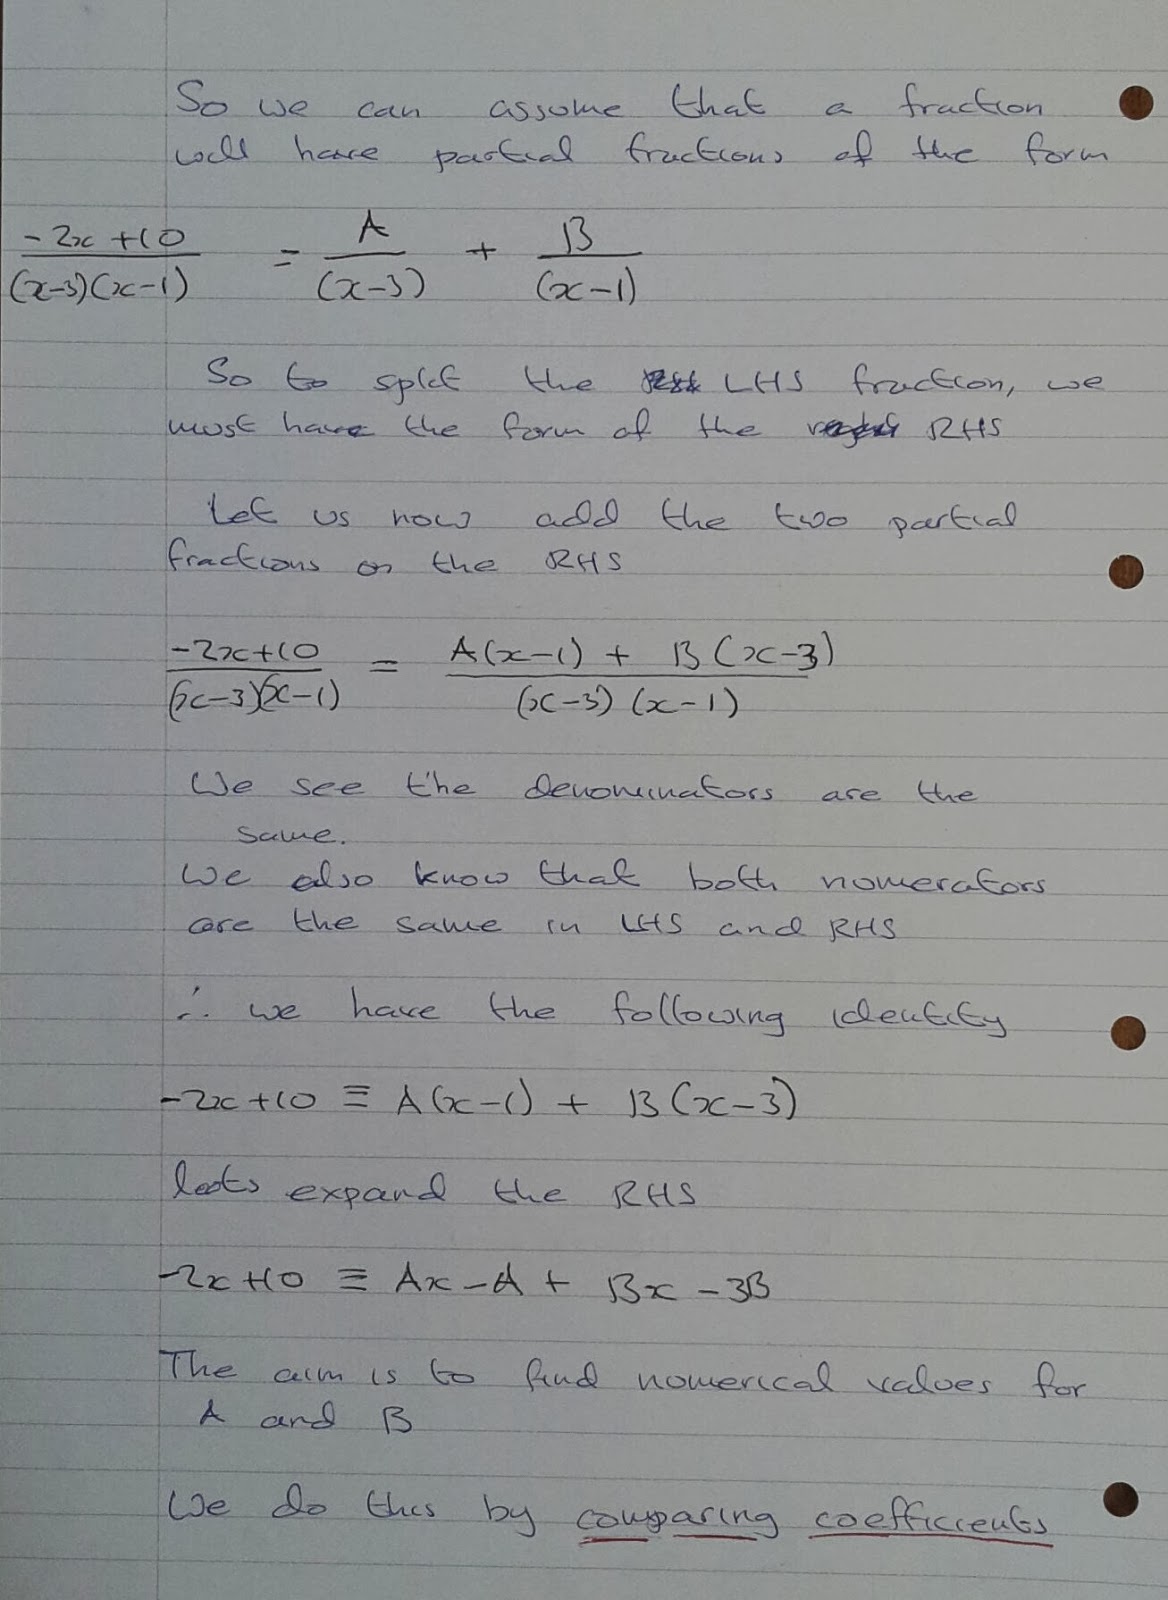 So we can assume that a fraction
will have partial fractions of the form
-2x+10 / (x-3)(x-1) = A / (x-3) + B / (x-1)
So to split the LHS fraction, we
must have the form of the RHS
Let us now add the two partial
fractions on the RHS
-2x+10 / (x-3)(x-1) = A(x-1) + B(x-3) / (x-3)(x-1)
We see the denominators are the
same.
We also know that both numerators
are the same in LHS and RHS
∴ we have the following identity
-2x+10 ≡ A(x-1) + B(x-3)
lets expand the RHS
-2x+10 ≡ Ax-A + Bx-3B
The aim is to find numerical values for
A and B
We do this by comparing coefficients